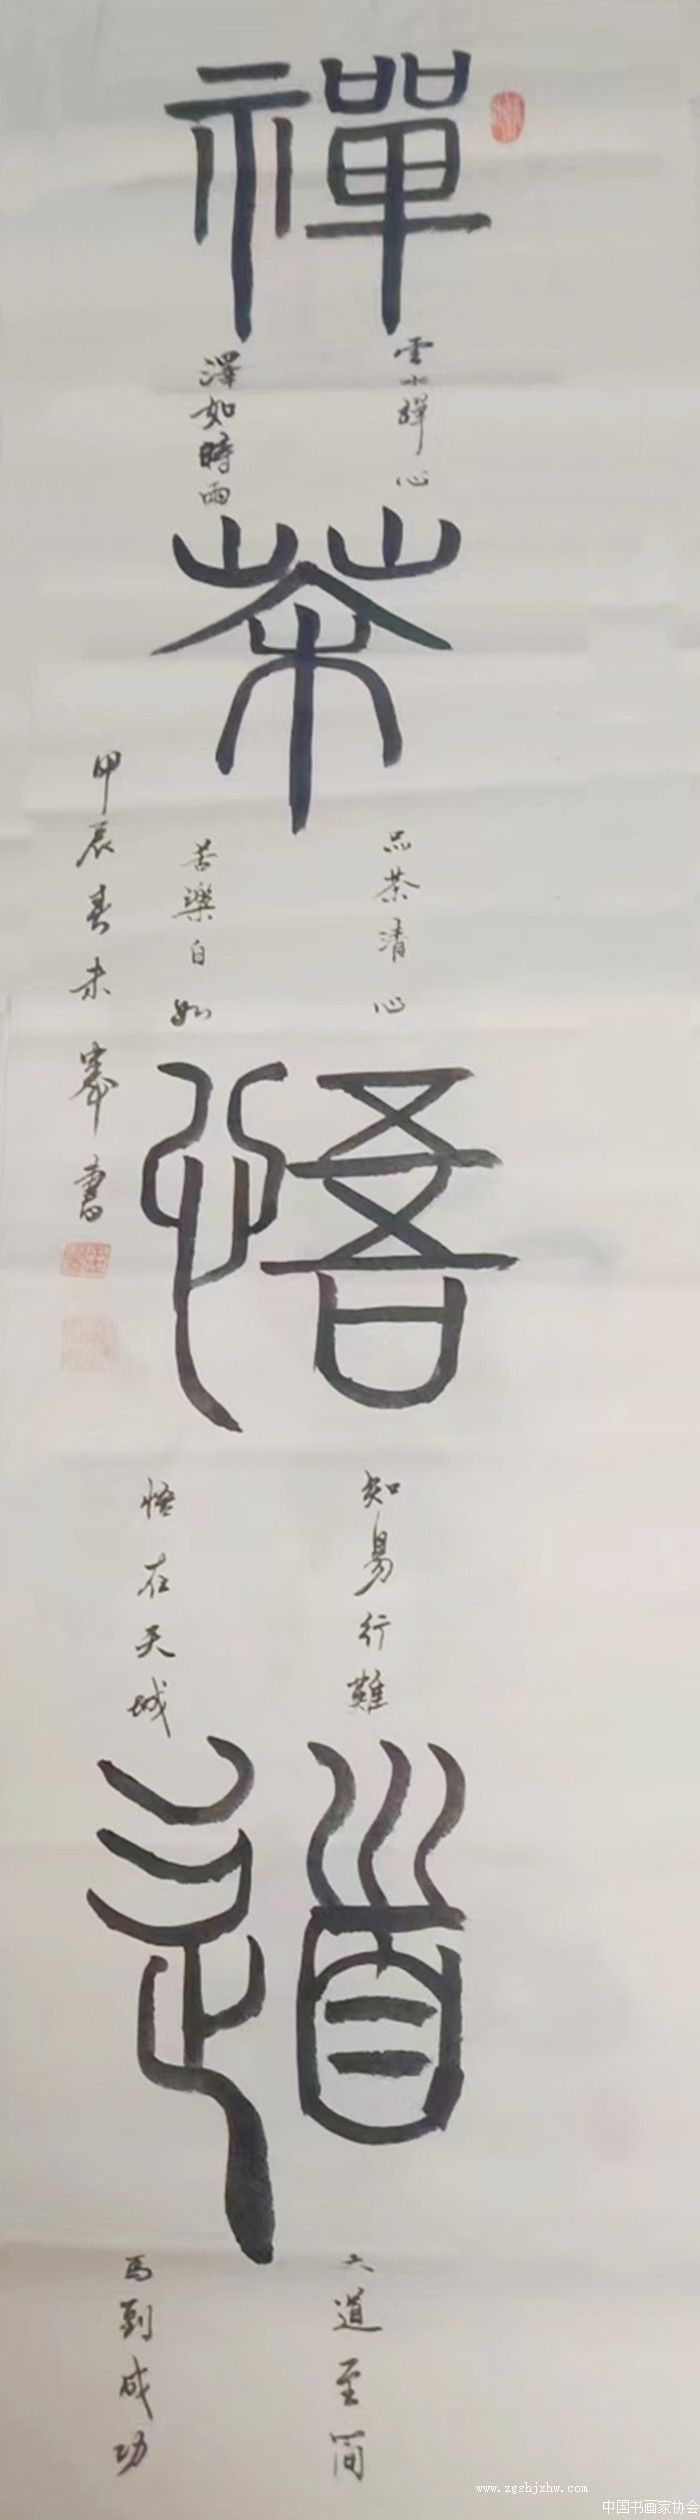 禪
雲水禪心
澤如時雨
茶
品茶清心
苦樂自如
悟
知易行難
悟在天城
道
大道至简
馬到成功
甲辰春朱峯書
www.zgshjxhw.com
中国书画家协会